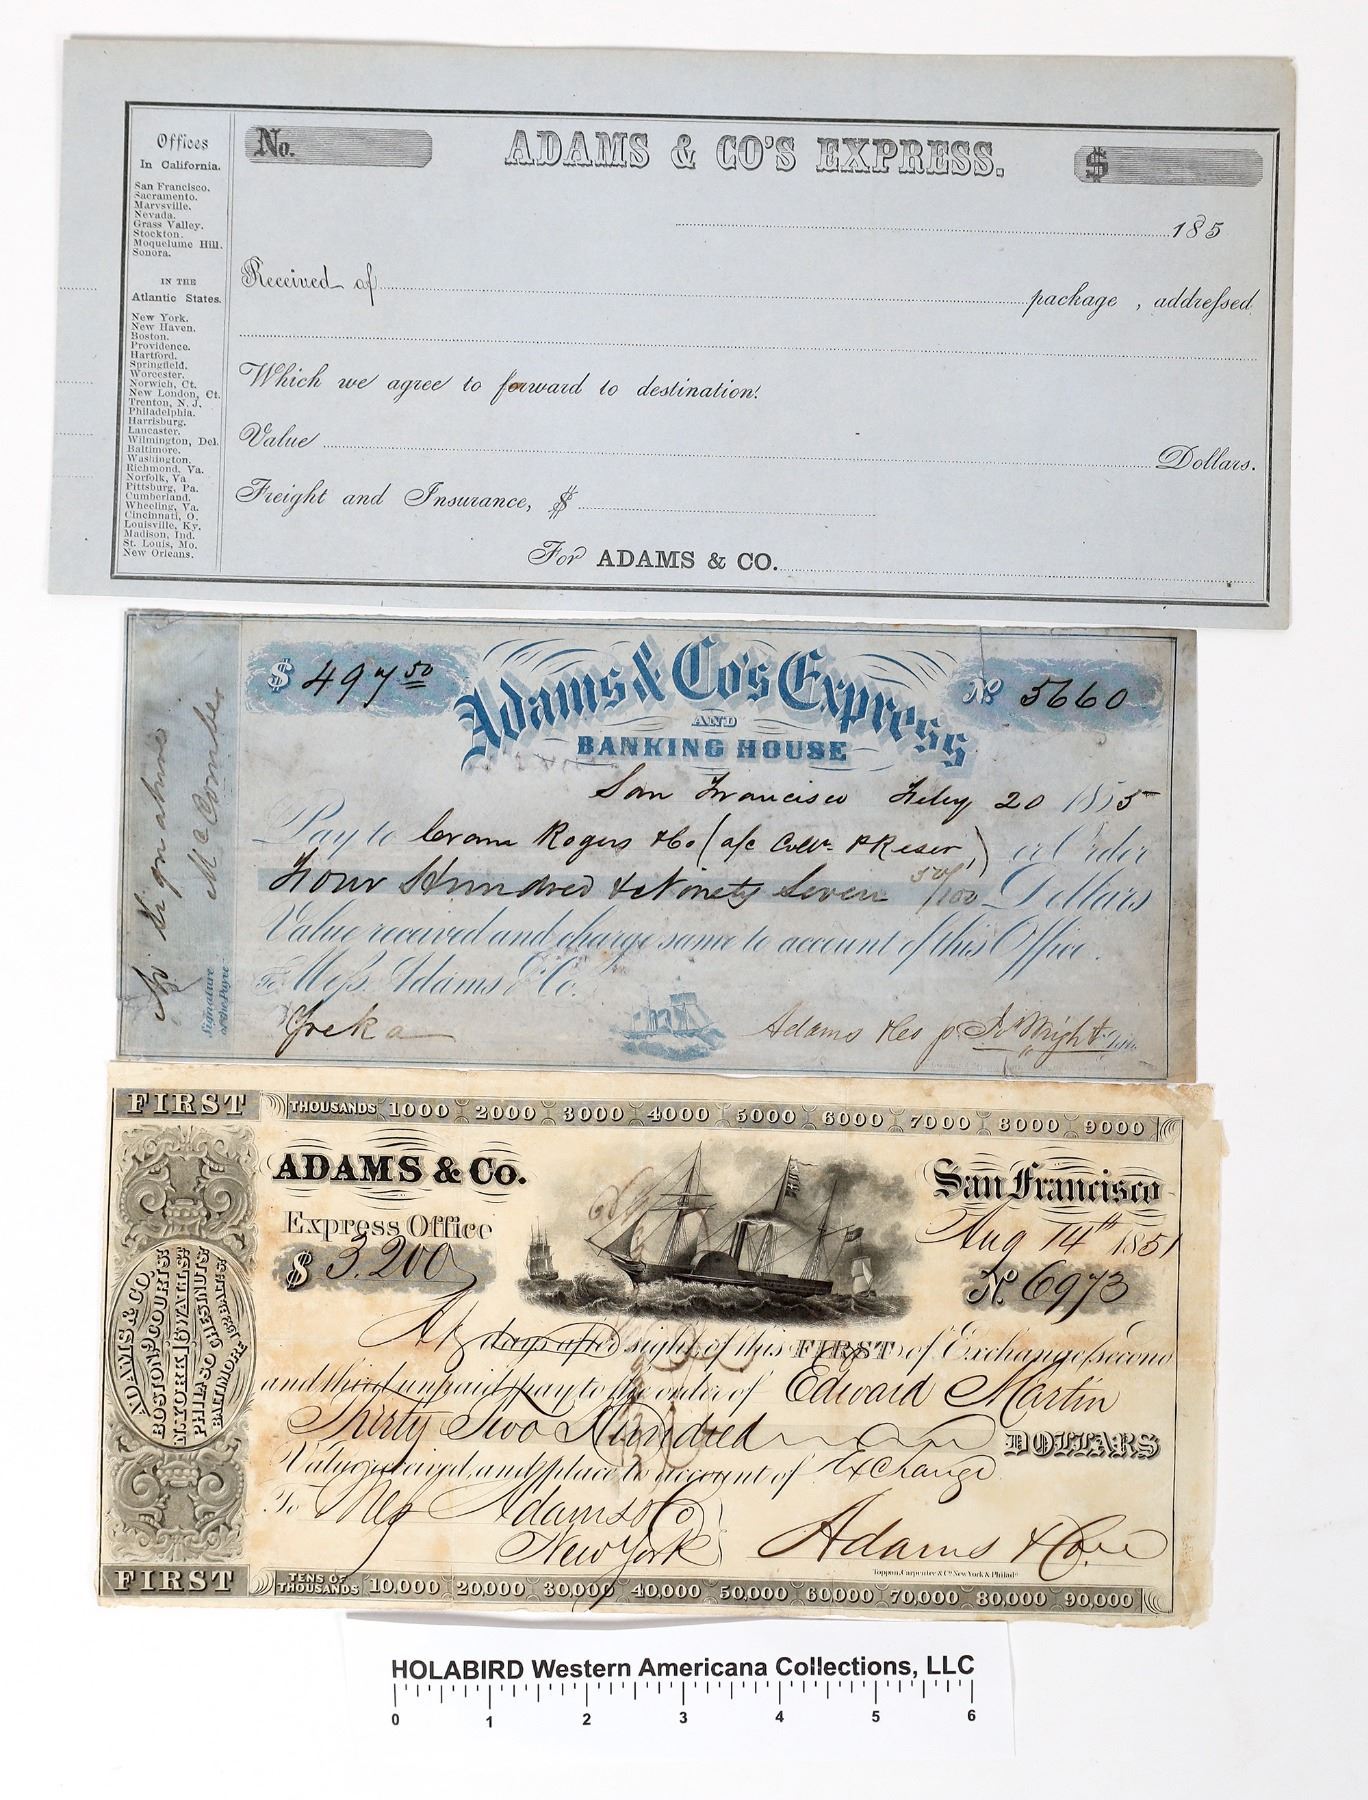 Offices
In California.
San Francisco.
Sacramento.
Marysville.
Nevada.
Grass Valley.
Stockton.
Moquelume Hill.
Sonora.
IN THE
Atlantic States.
New York.
New Haven.
Boston.
Providence.
Hartford.
Springfield.
Worcester.
Norwich, Ct.
New London, Ct.
Trenton, N. J.
Philadelphia.
Harrisburg.
Lancaster.
Wilmington, Del.
Baltimore.
Washington.
Richmond, Va.
Norfolk, Va
Pittsburg, Pa.
Cumberland.
Wheeling, Va.
Cincinnati, O.
Louisville, Ky.
Madison, Ind.
St. Louis, Mo.
New Orleans.
No. ADAMS & CO'S EXPRESS. $
185
Received of package , addressed
Which we agree to forward to destination.
Value Dollars.
Freight and Insurance, $
For ADAMS & CO.
$ 497 50 Adams & Co's Express No 5660
AND
BANKING HOUSE
San Francisco Feby 20 1855
Pay to Cram Rogers & Co (a/c or Order
Four Hundred & Ninety Seven 50/100 Dollars
Value received and charge same to account of this Office.
To Mess. Adams & Co.
Yreka Adams & Co p Wright
No Signature
McComber
Signature
of the Payee
FIRST THOUSANDS 1000 2000 3000 4000 5000 6000 7000 8000 9000
ADAMS & Co. San Francisco
Express Office Aug 14th 1851
$ 3.200 No. 6973
At days after sight of this FIRST of Exchange (second
and third unpaid) pay to the order of Edward Martin
Thirty Two Hundred DOLLARS
Value received, and place to account of Exchange
To Mess Adams & Co
New York Adams & Co
Toppan, Carpenter & Co New York & Philada
ADAMS & CO.
BOSTON 9 COURT St
N. YORK 16 WALL St
PHILA 80 CHESNUT St
BALTIMORE
FIRST TENS OF THOUSANDS 10,000 20,000 30,000 40,000 50,000 60,000 70,000 80,000 90,000
HOLABIRD Western Americana Collections, LLC
0 1 2 3 4 5 6